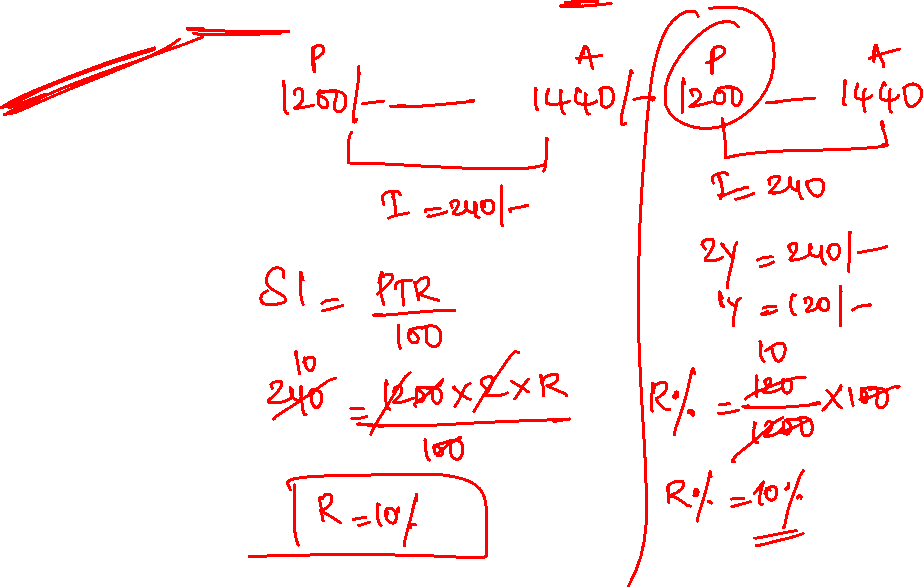 P A
1200/- — 1440/-
I = 240/-
SI = PTR
100
10
240 = 1200 × 2 × R
100
R = 10%
P A
1200 — 1440
I = 240
2Y = 240/-
1Y = 120/-
10
R% = 120 × 100
1200
R% = 10%